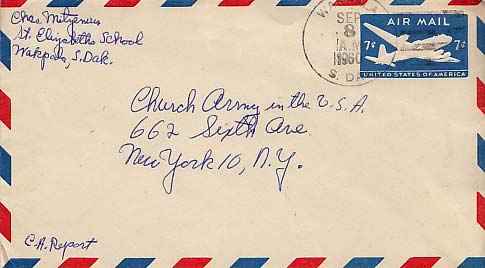 Chas.
St. Elizabeths School
Wakpala, S. Dak.
SEP
8
A.M
1960
S. DAK
AIR MAIL
7¢ 7¢
UNITED STATES OF AMERICA
Church Army in the U.S.A.
662 Sixth Ave.
New York 10, N.Y.
C.A. Report